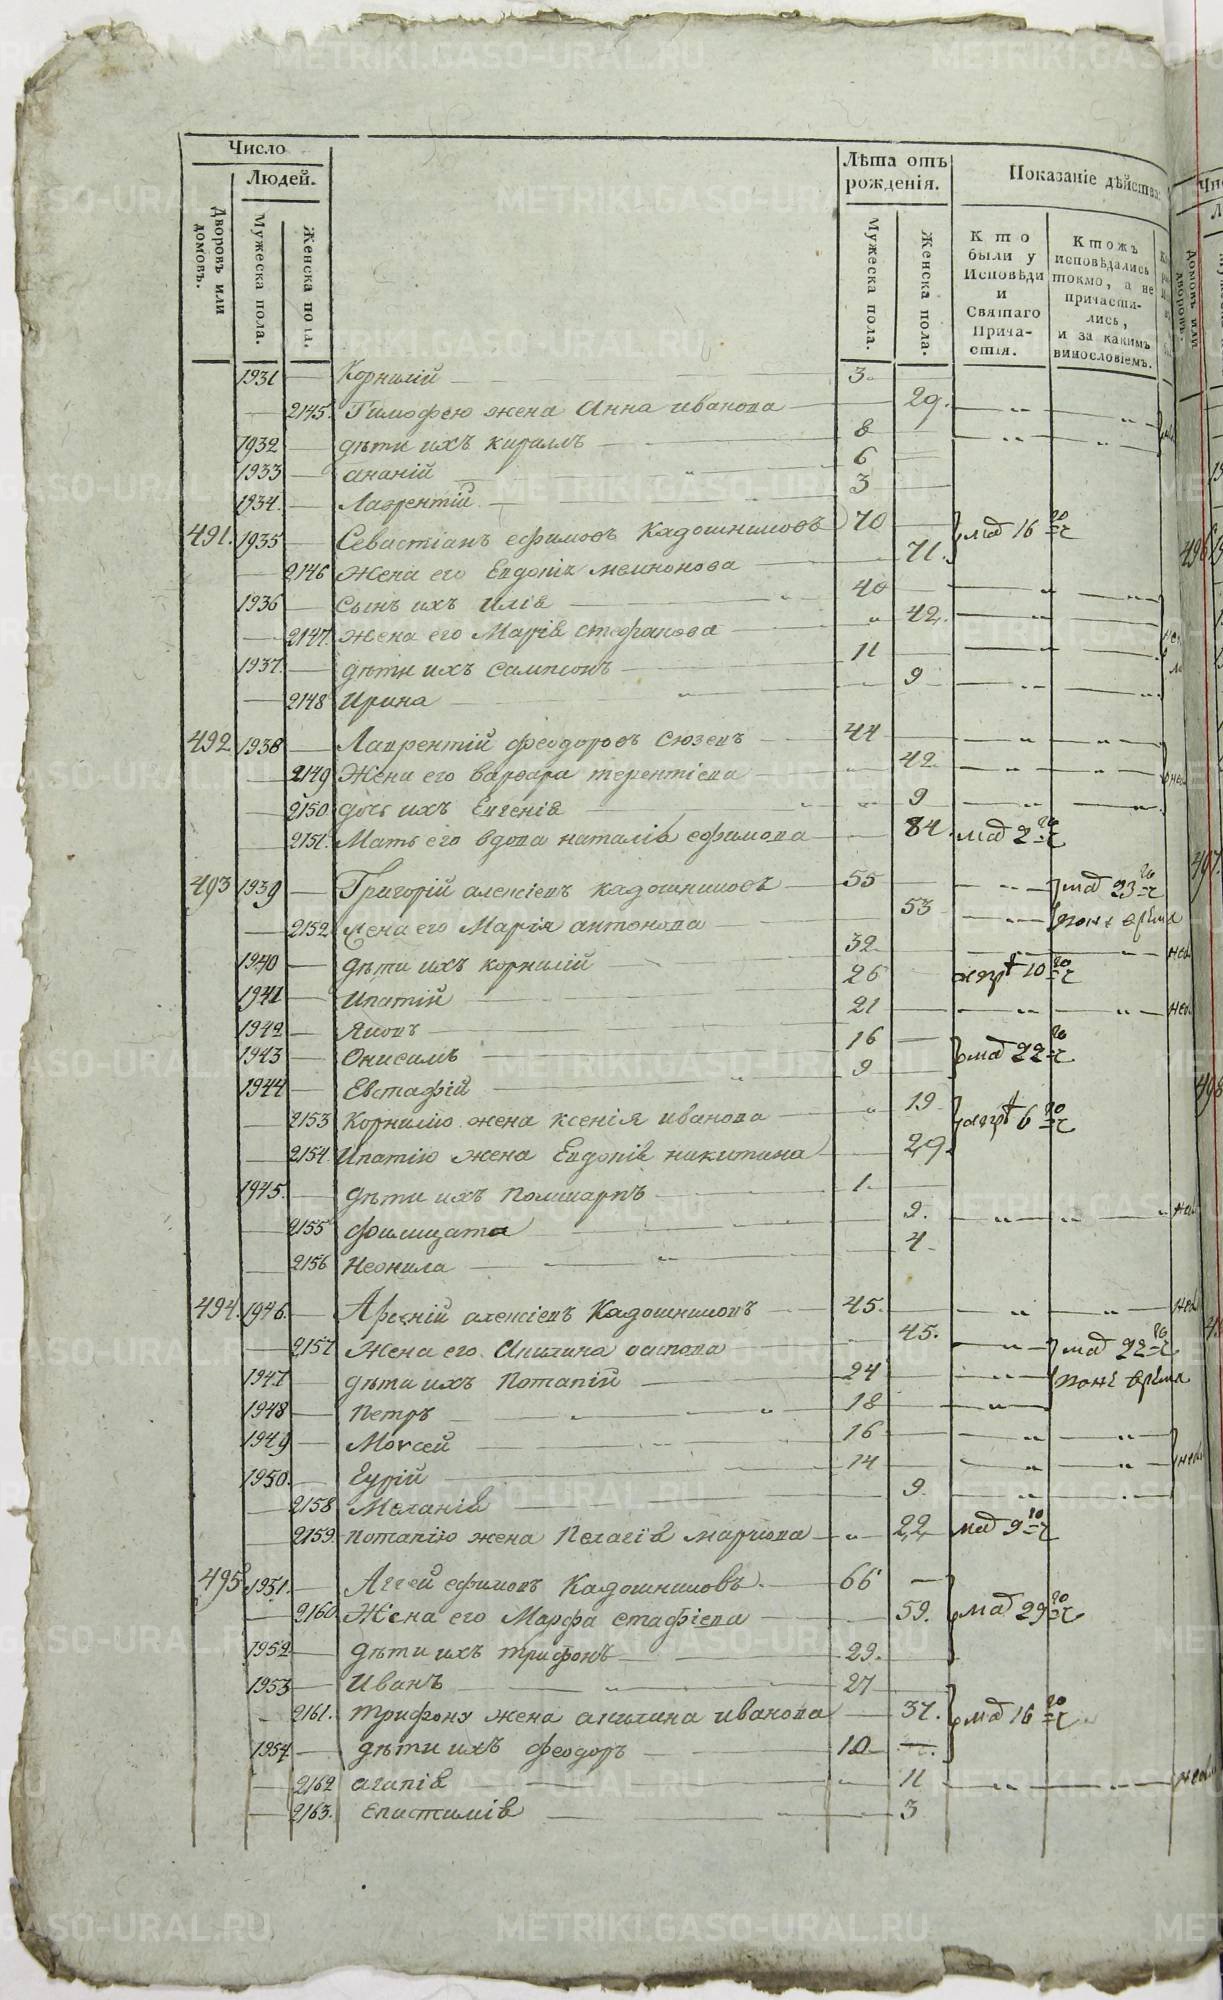 Число
Людей.
Дворовъ или домовъ.
Мужеска пола.
Женска пола.
Лѣта отъ рожденія.
Мужеска пола.
Женска пола.
Показаніе дѣйства
Кто были у Исповѣди и Святаго Прича-стія.
Ктожъ исповѣдались токмо, а не причасти-лись, и за какимъ винословіемъ.
1931 Корнилій 3
2145. Тимофею жена Анна иванова 29.
1932 дѣти ихъ кириллъ 8
1933 ананій 6
1934. Лаврентій 3
491. 1935 Севастіанъ ефимовъ Кадошниковъ 70 маѣ 16 го ч
2146 Жена его Евдопія мемнонова 71.
1936 сынъ ихъ илія 40
2147. жена его Марія стефанова 42.
1937. дѣти ихъ сампсонъ 11
2148 Ирина 9
492 1938 Лаврентій феодоровъ сюзевъ 44
2149 Жена его варвара терентіева 42
2150 дочь ихъ Евгенія 9
2151. Мать его вдова наталія ефимова 84. маѣ 2 го ч
493 1939 Григорій алексіевъ кадошниковъ 55 маѣ 23 го ч
2152 жена его Марія антонова 53
1940 дѣти ихъ корнилій 32
1941 Ипатій 26 10 го ч
1942 Яковъ 21
1943 Онисимъ 16 маѣ 22 го ч
1944 Евстафій 9
2153 Корнилію жена ксенія иванова 19 6 го ч
2154. Ипатію жена Евдопія никитина 29.
1945. дѣти ихъ Поликарпъ 1.
2155 филицата 9.
2156 Неонила 4
494. 1946. Арсеній алексіевъ Кадошниковъ 45.
2157 Жена его Акилина 45. маѣ 22 го ч
1947 дѣти ихъ Потапій 24
1948 Петръ 18
1949 Моѵсей 16
1950. 14
2158 Меланія 9
2159. потапію жена Пелагія маркова 22 маѣ 9 го ч
495 1951. Аггей ефимовъ Кадошниковъ 66 маѣ 29 го ч
2160 Жена его Марфа стафіева 59.
1952 дѣти ихъ трифонъ 29.
1953 Иванъ 27
2161. трифону жена акилина иванова 37. маѣ 16 го ч
1954. дѣти ихъ феодоръ 10
2162 агапія 11
2163. епистимія 3